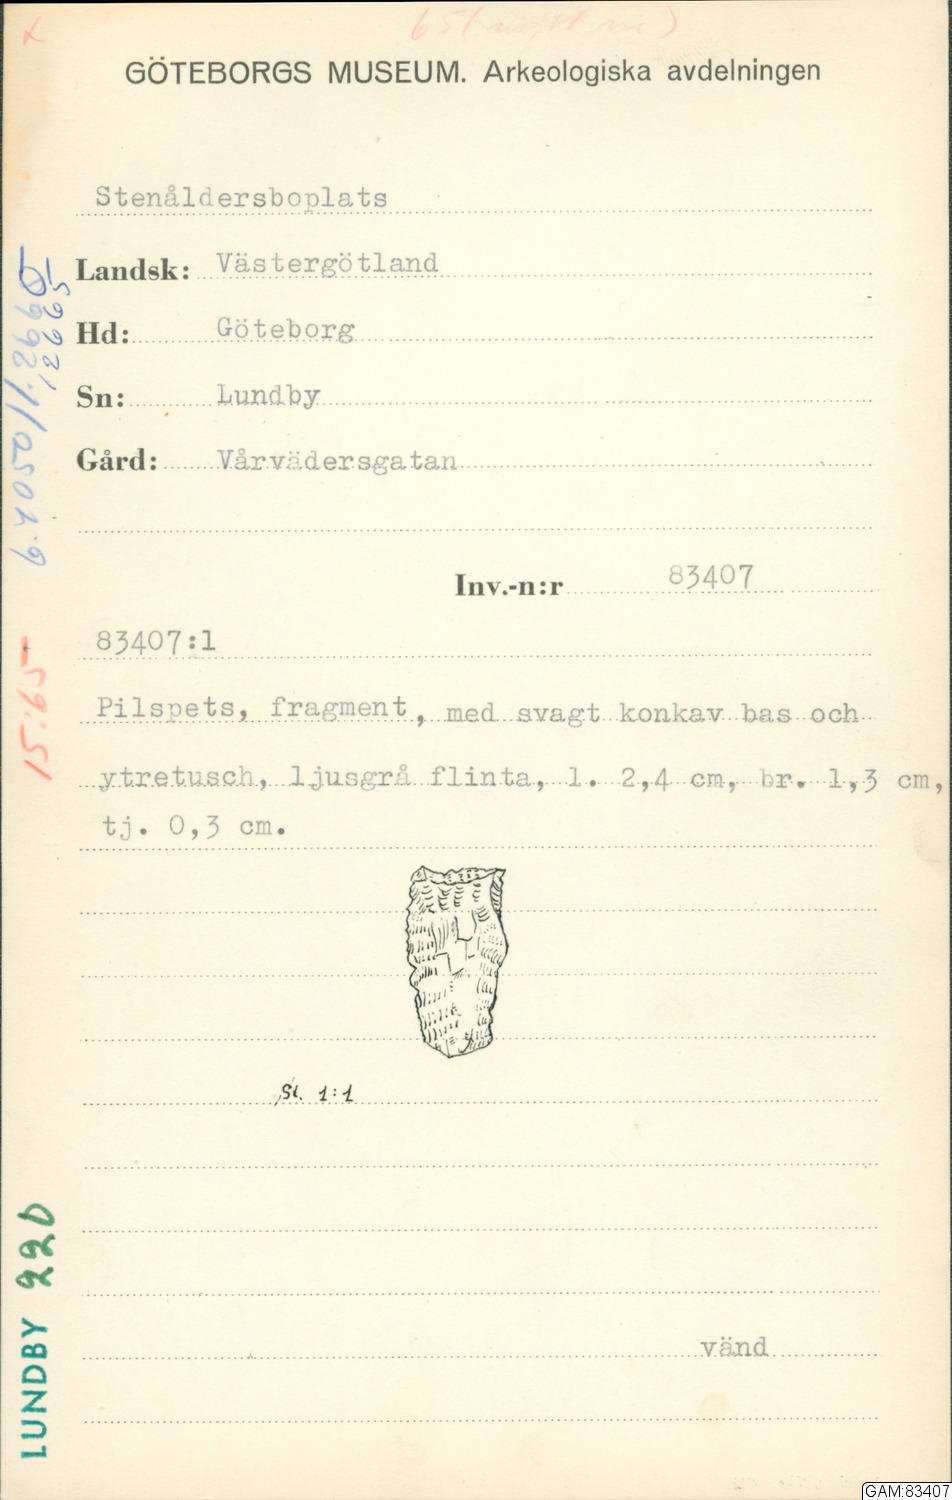 GÖTEBORGS MUSEUM. Arkeologiska avdelningen
Stenåldersboplats
Landsk: Västergötland
Hd: Göteborg
Sn: Lundby
Gård: Vårvädersgatan
Inv.-n:r 83407
83407:1
Pilspets, fragment, med svagt konkav bas och
ytretusch, ljusgrå flinta, l. 2,4 cm, br. 1,3 cm,
tj. 0,3 cm.
1:1
vänd
15:65
LUNDBY 220
GAM:83407